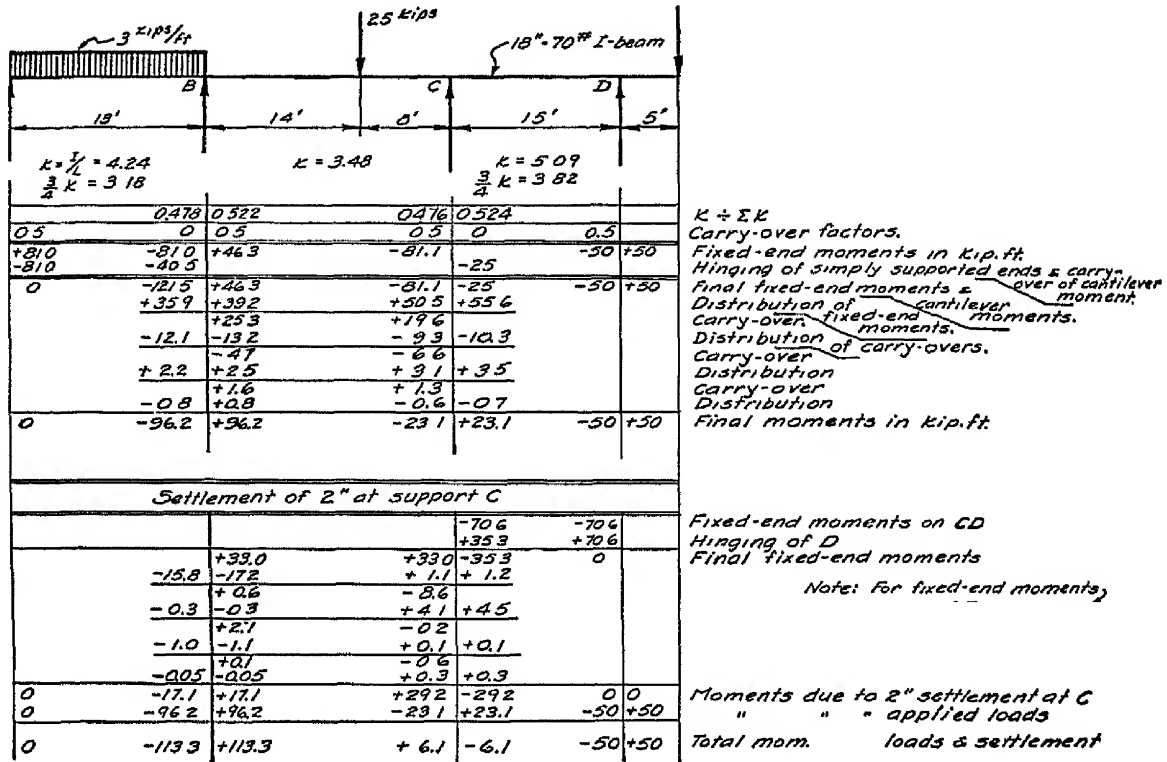 25 kips
3 kips/ft
18"-70# I-beam
B C D
18' 14' 8' 15' 5'
K = I/L = 4.24 K = 3.48 K = 5 09
3/4 K = 3 18 3/4 K = 3 82
0.478 0 522 0 476 0 524 K ÷ ΣK
0 5 0 0 5 0 5 0 0.5 Carry-over factors.
+81 0 -81 0 +46 3 -81.1 -50 +50 Fixed-end moments in kip.ft
-81 0 -40 5 -25 Hinging of simply supported ends & carry-over of cantilever moment.
0 -121 5 +46 3 -81.1 -25 -50 +50 Final fixed-end moments & cantilever moments.
+35 9 +39 2 +50 5 +55 6 Distribution of fixed-end moments.
+25 3 +19 6 Carry-over.
-12.1 -13 2 - 9 3 -10.3 Distribution of carry-overs.
- 4 7 - 6 6 Carry-over
+ 2.2 +2 5 + 3 1 +3 5 Distribution
+1.6 + 1.3 Carry-over
-0 8 +0.8 -0.6 -0 7 Distribution
0 -96.2 +96.2 -23 1 +23.1 -50 +50 Final moments in kip.ft.
Settlement of 2" at support C
-70 6 -70 6 Fixed-end moments on CD
+35 3 +70 6 Hinging of D
+33.0 +33 0 -35 3 0 Final fixed-end moments
-15.8 -17 2 + 1.1 + 1.2
Note: For fixed-end moments,
+ 0.6 - 8.6
- 0.3 -0 3 + 4 1 +4 5
+2.1 - 0 2
- 1.0 -1.1 + 0.1 +0.1
+0.1 - 0 6
-0.05 -0.05 + 0.3 +0.3
0 -17.1 +17.1 +29 2 -29 2 0 0 Moments due to 2" settlement at C
0 -96 2 +96.2 -23 1 +23.1 -50 +50 " " " applied loads
0 -113 3 +113.3 + 6.1 -6.1 -50 +50 Total mom. loads & settlement